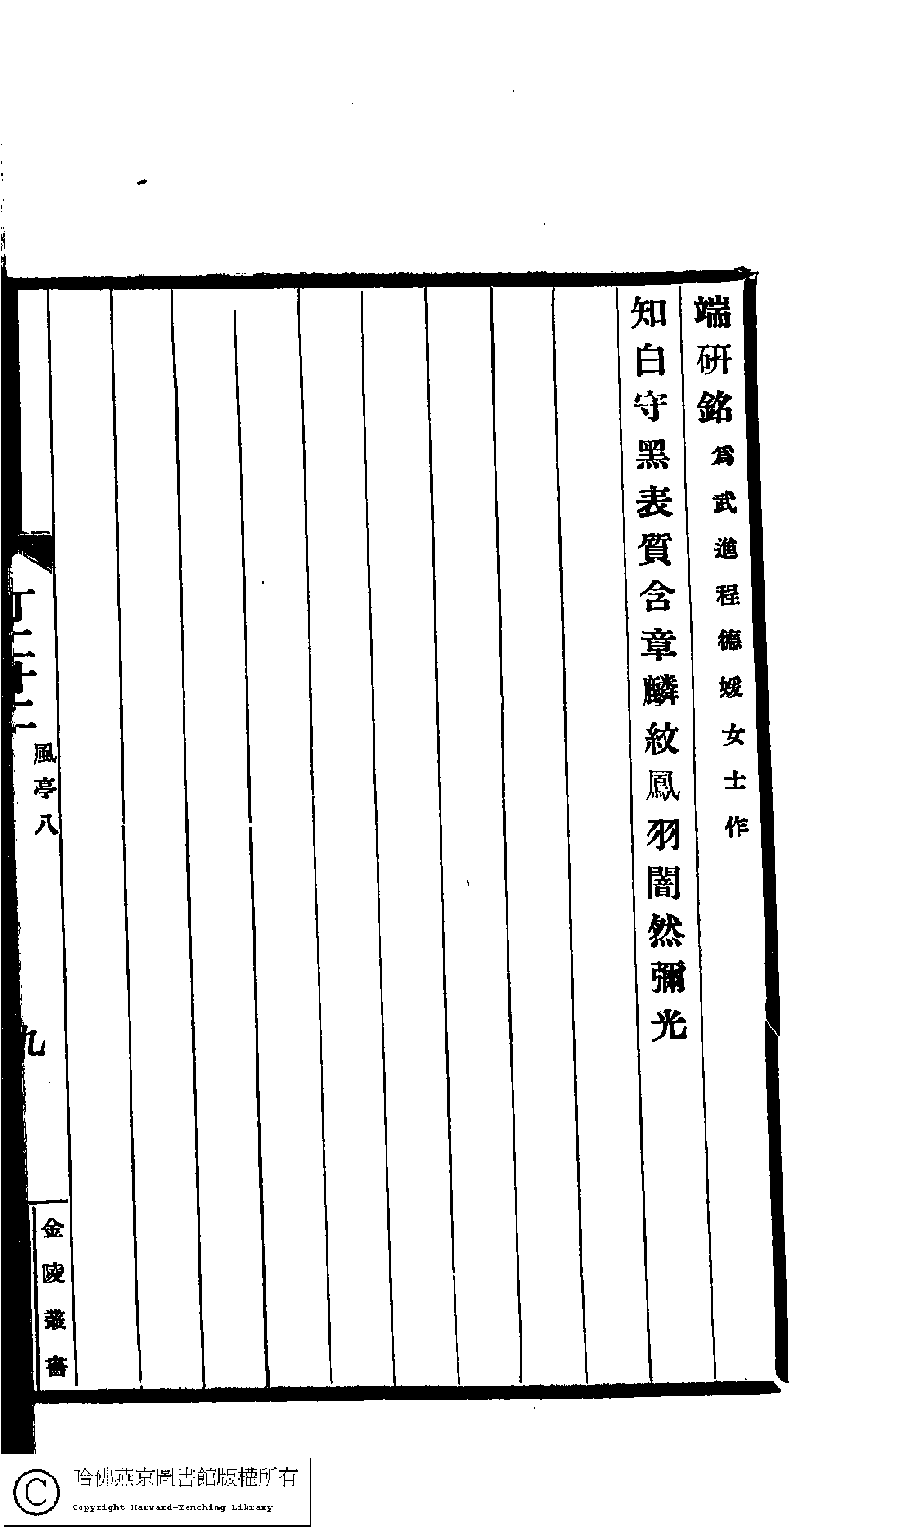 端硏銘爲武進程德媛女士作
知白守黑表質含章麟紋鳳羽闇然彌光
風亭八
九
金陵叢書
哈佛燕京圖書館版權所有
Copyright Harvard-Yenching Library